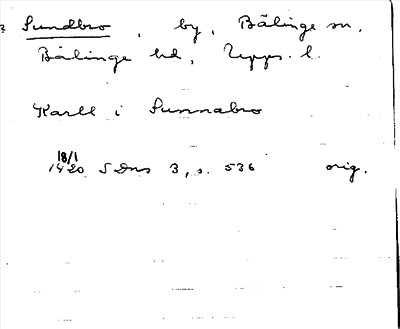 Sundbro, by, Bälinge sn,
Bälinge hd, Upps. l.
Karll i Sunnabro
18/1
1420 SDns 3, s. 536 orig.